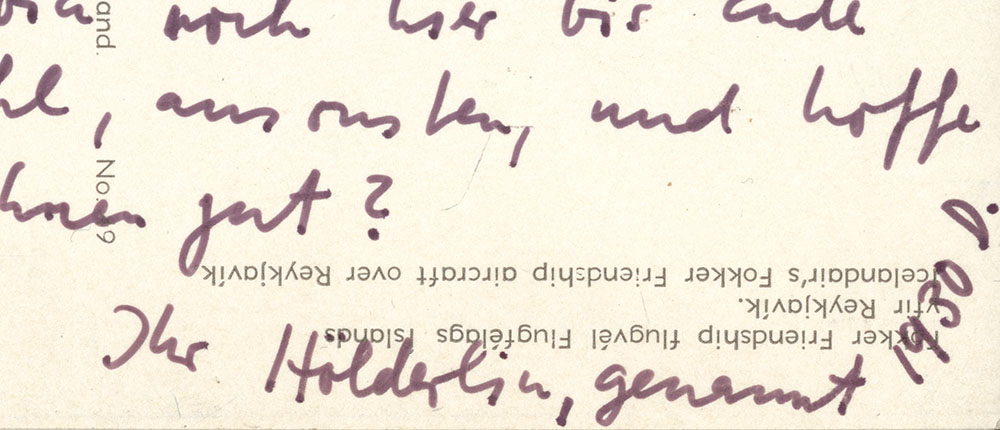 noch hier bis Ende
hl, ansonsten, und hoffe
hnen gut ?
Ihr Hölderlin, genannt
Fokker Friendship flugvél Flugfélags Íslands
yfir Reykjavík.
Icelandair's Fokker Friendship aircraft over Reykjavík
and.
No. 9